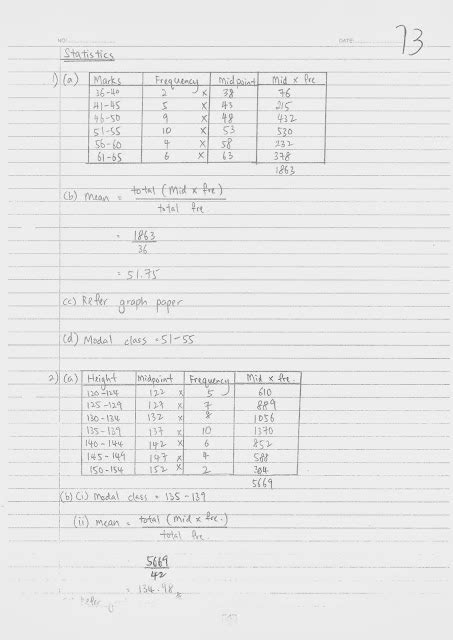 NO: DATE: 73
Statistics
1) (a) Marks Frequency Midpoint Mid x fre
36-40 2 x 38 76
41-45 5 x 43 215
46-50 9 x 48 432
51-55 10 x 53 530
56-60 4 x 58 232
61-65 6 x 63 378
1863
(b) Mean = total (Mid x fre)
total fre
= 1863
36
= 51.75
(c) Refer graph paper
(d) Modal class = 51-55
2) (a) Height Midpoint Frequency Mid x fre.
120-124 122 x 5 610
125-129 127 x 7 889
130-134 132 x 8 1056
135-139 137 x 10 1370
140-144 142 x 6 852
145-149 147 x 4 588
150-154 152 x 2 304
5669
(b) (i) Modal class = 135-139
(ii) Mean = total (Mid x fre.)
total fre.
5669
42
= 134.98
Refer